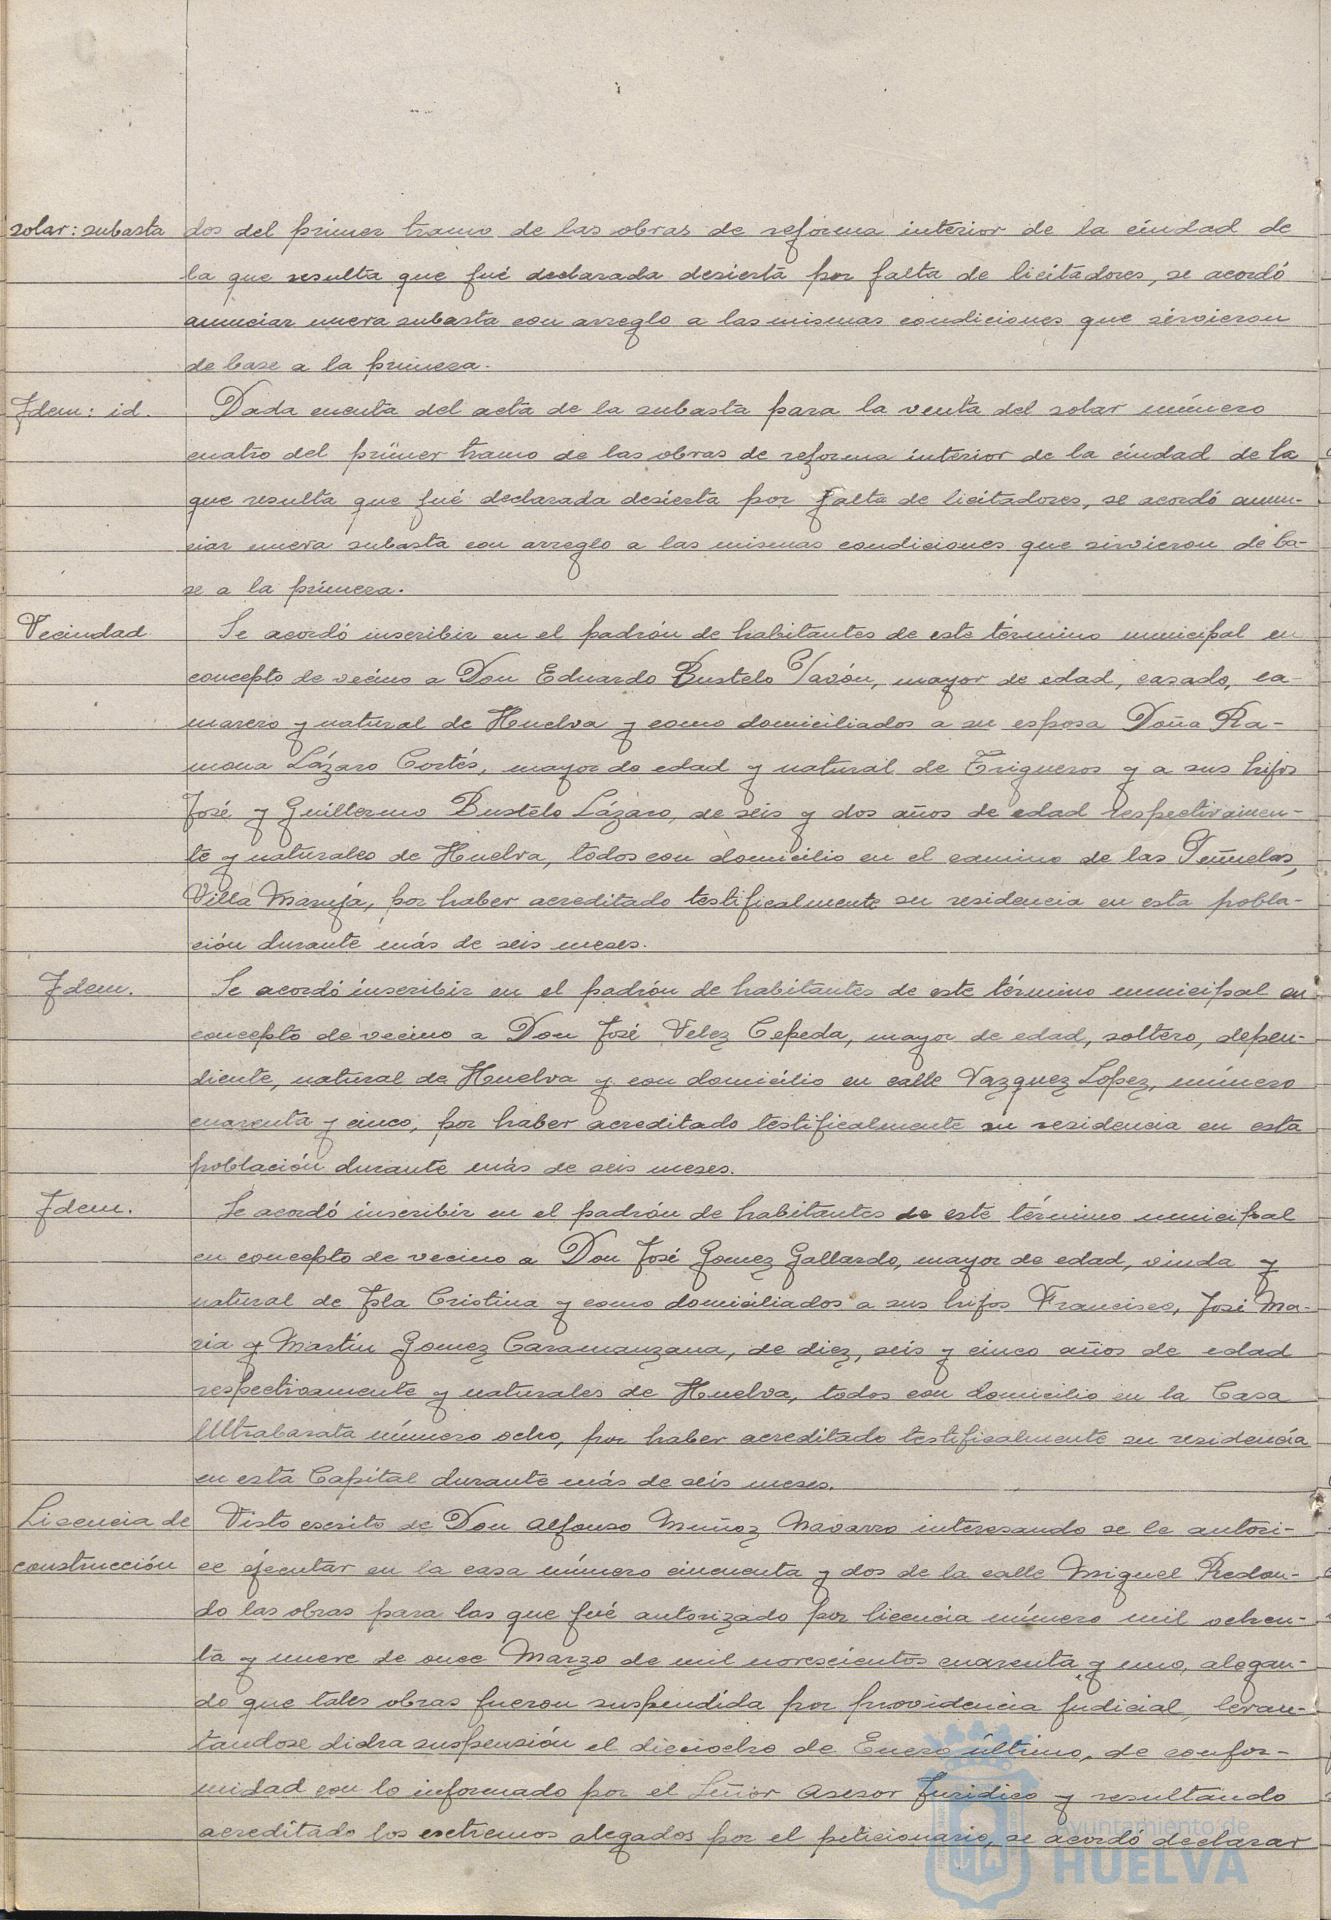 solar: subasta dos del primer tramo de las obras de reforma interior de la ciudad de
la que resulta que fué declarada desierta por falta de licitadores, se acordó
anunciar nueva subasta con arreglo a las mismas condiciones que sirvieron
de base a la primera.
Idem: id. Dada cuenta del acta de la subasta para la venta del solar número
cuatro del primer tramo de las obras de reforma interior de la ciudad de la
que resulta que fué declarada desierta por falta de licitadores, se acordó anun-
ciar nueva subasta con arreglo a las mismas condiciones que sirvieron de ba-
se a la primera.
Vecindad Se acordó inscribir en el padrón de habitantes de este término municipal en
concepto de vecino a Don Eduardo Bustelo Pavón, mayor de edad, casado, ca-
marero y natural de Huelva y como domiciliados a su esposa Doña Ra-
mona Lázaro Cortés, mayor de edad y natural de Trigueros y a sus hijos
José y Guillermo Bustelo Lázaro, de seis y dos años de edad respectivamen-
te y naturales de Huelva, todos con domicilio en el camino de las Peñuelas,
Villa Maruja, por haber acreditado testificalmente su residencia en esta pobla-
ción durante más de seis meses.
Idem. Se acordó inscribir en el padrón de habitantes de este término municipal en
concepto de vecino a Don José Velez Cepeda, mayor de edad, soltero, depen-
diente, natural de Huelva y con domicilio en calle Vazquez Lopez, número
cuarenta y cinco, por haber acreditado testificalmente su residencia en esta
población durante más de seis meses.
Idem. Se acordó inscribir en el padrón de habitantes de este término municipal
en concepto de vecino a Don José Gomez Gallardo, mayor de edad, viuda y
natural de Isla Cristina y como domiciliados a sus hijos Francisco, José Ma-
ria y Martín Gomez Caramanzana, de diez, seis y cinco años de edad
respectivamente y naturales de Huelva, todos con domicilio en la Casa
Ultrabarata número ocho, por haber acreditado testificalmente su residencia
en esta Capital durante más de seis meses.
Licencia de Visto escrito de Don Alfonso Muñoz Navarro interesando se le autori-
construcción ce ejecutar en la casa número cincuenta y dos de la calle Miguel Redon-
do las obras para las que fué autorizado por licencia número mil ochen-
ta y nueve de once Marzo de mil novescientos cuarenta y uno, alegan-
do que tales obras fueron suspendida por providencia judicial, levan-
tandose dicha suspensión el dieciocho de Enero último, de confor-
midad con lo informado por el Señor Asesor Juridico y resultando
acreditado los extremos alegados por el peticionario, se acordó declarar
Ayuntamiento de
HUELVA